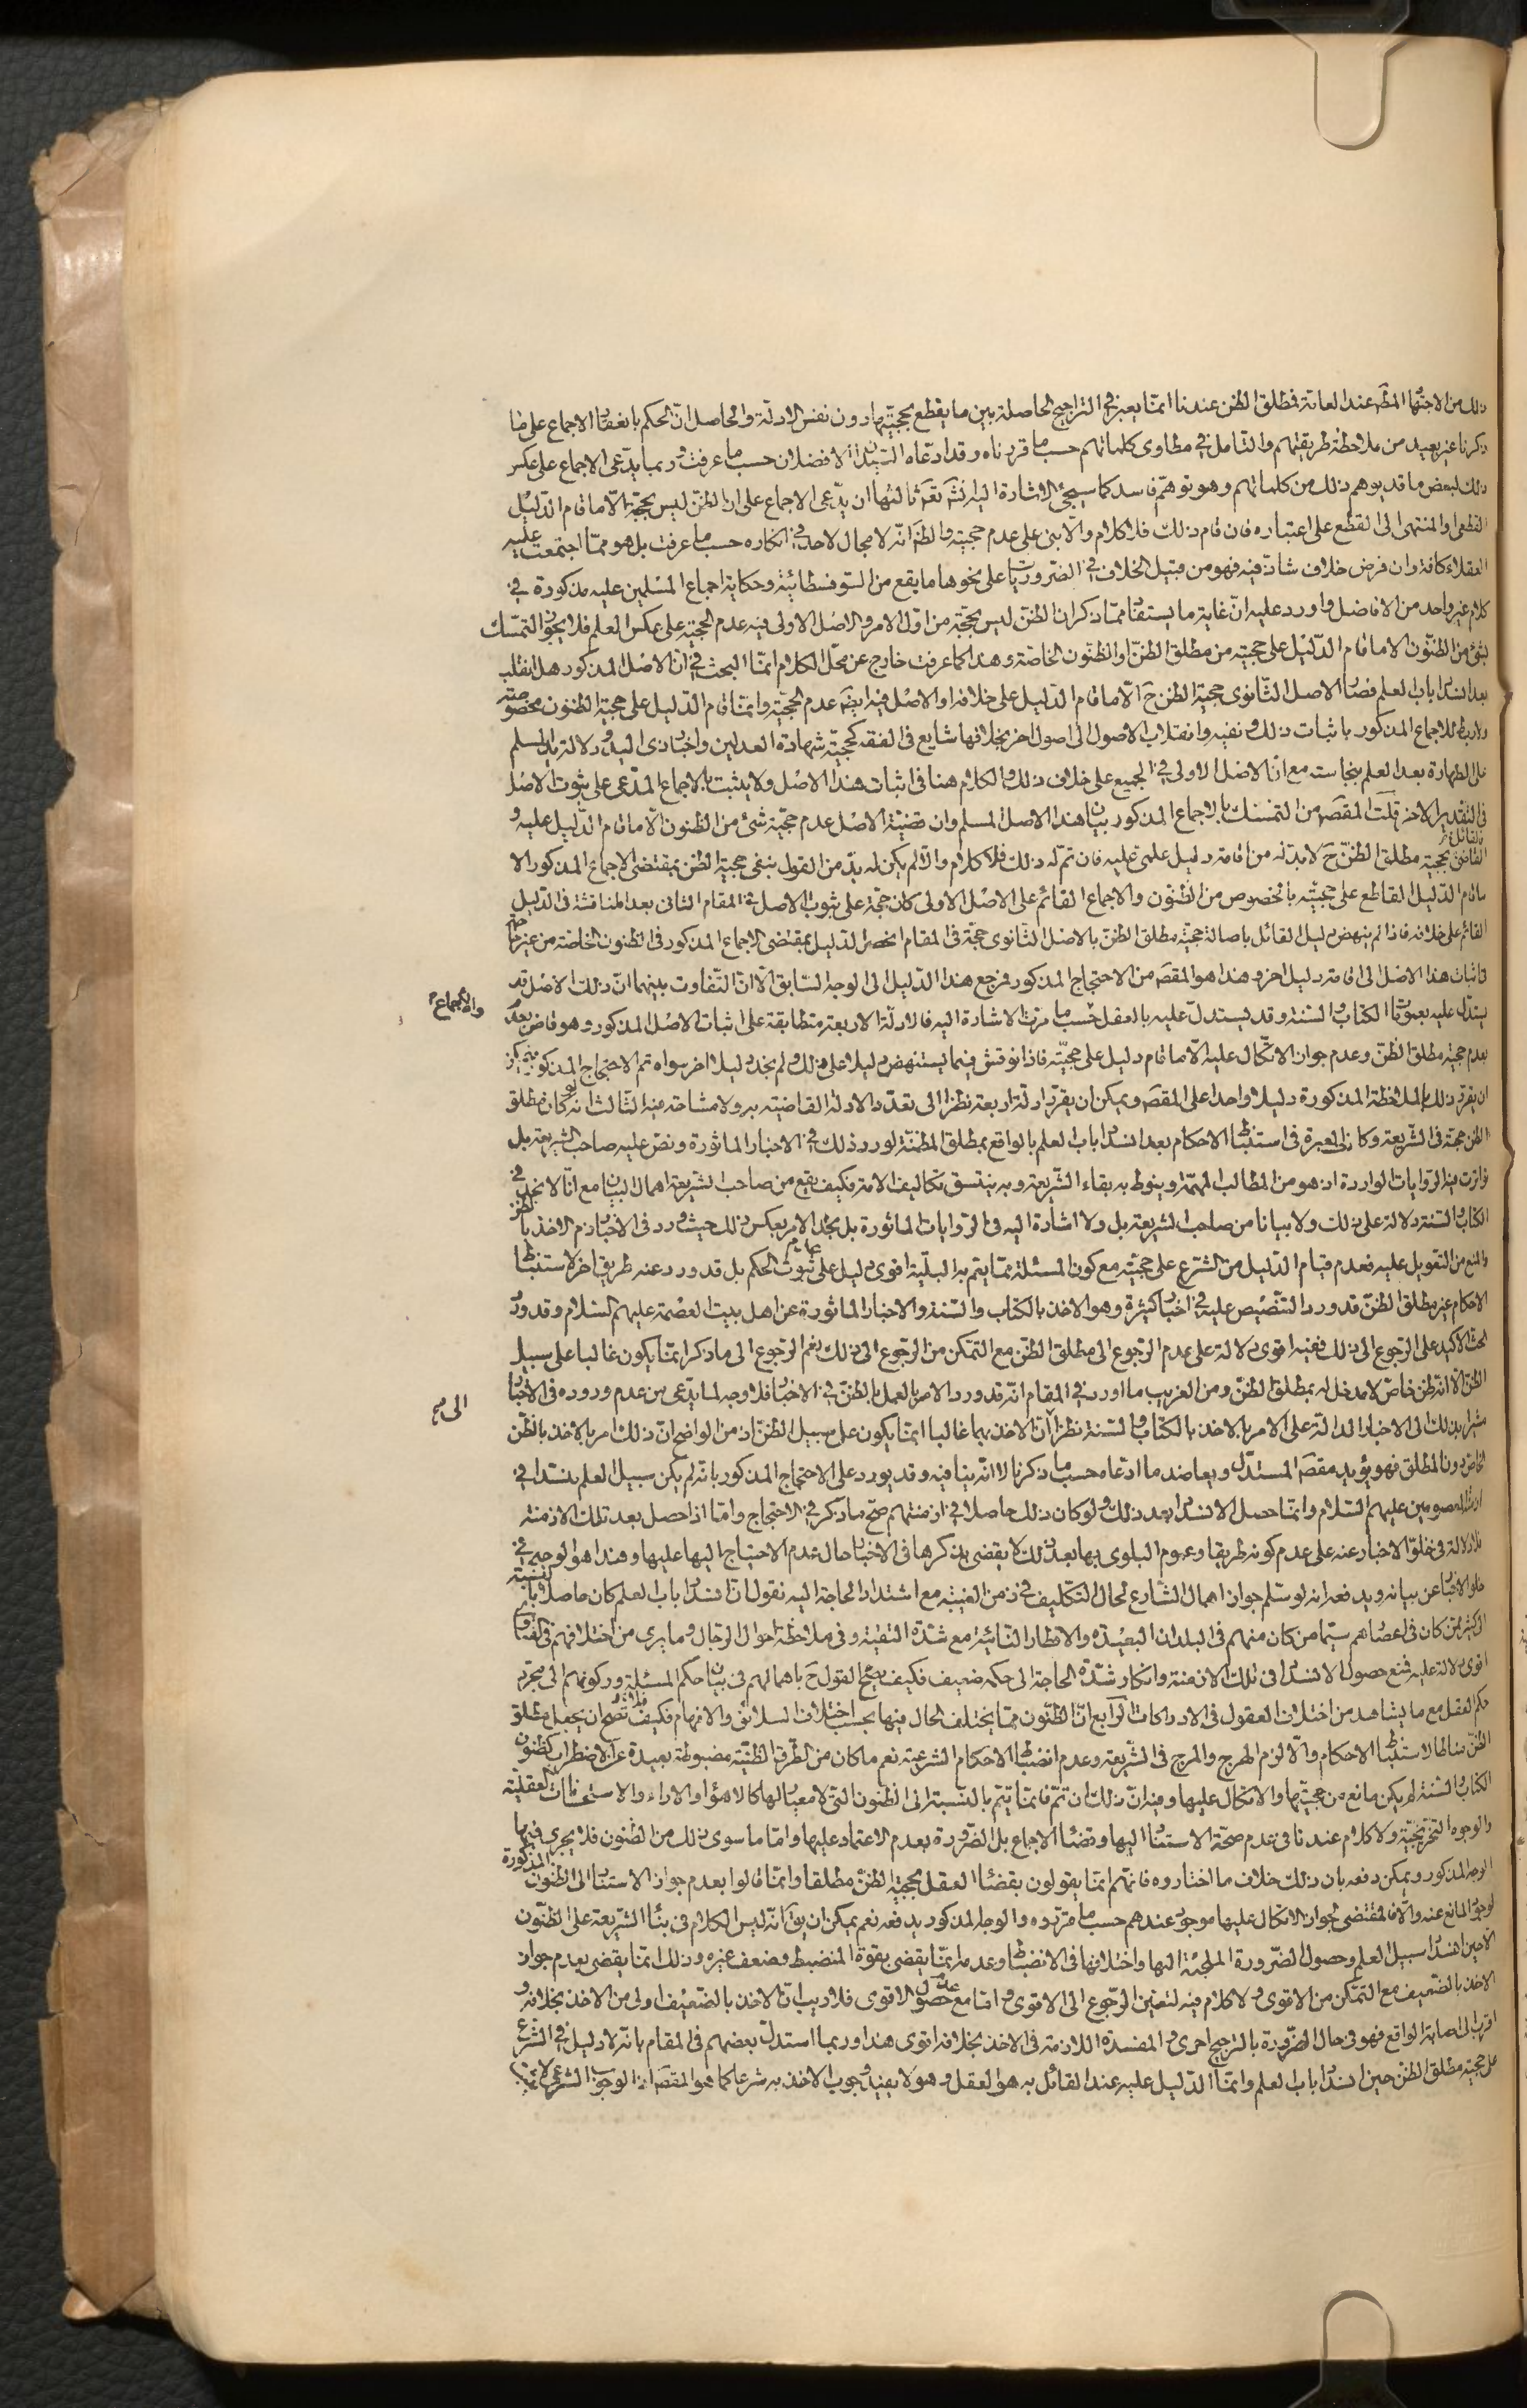 ذلك من الاجتهاد المطلق عند العامة فمطلق الظن عندنا انما يعتبر في التراجيح الحاصلة بين ما يقطع بحجيتها دون نفس الادلة والحاصل ان الحكم بانعقاد الاجماع على ما
ذكرنا غير بعيد من ملاحظة طريقتهم والتامل في مطاوى كلماتهم حسب ما قررناه وقد ادعاه السيدان الافضلان حسب ما عرفت وربما يدعى الاجماع على عكس
ذلك لبعض ما قد يوهم ذلك من كلماتهم وهو توهم فاسد كما سيجئ الاشارة اليه انشه تعه ثالثها ان يدعى الاجماع على ان الظن ليس بحجة الا ما قام الدليل
القطعى او المنتهى الى القطع على اعتباره فان قام ذلك فلا كلام والا بنى على عدم حجيته والظه انه لا مجال لاحد في انكاره حسب ما عرفت بل هو مما اجتمعت عليه
العقلاء كافة وان فرض خلاف شاذ فيه فهو من قبيل الخلاف في الضروريات على نحو ها ما يقع من السوفسطائية وحكاية اجماع المسلمين عليه مذكورة في
كلام غير واحد من الافاضل واورد عليه ان غاية ما يستفاد مما ذكر ان الظن ليس بحجة من اول الامر والاصل الاولى فيه عدم الحجية على عكس العلم فلا يجوز التمسك
بشئ من الظنون الا ما قام الدليل على حجيته من مطلق الظن او الظنون الخاصة وهذا كما عرفت خارج عن محل الكلام انما البحث في ان الاصل المذكور هل انقلب
بعد انسداد باب العلم فصار الاصل الثانوى حجية الظن ح الا ما قام الدليل على خلافه او الاصل فيه ايضه عدم الحجية وانما قام الدليل على حجية الظنون مخصوصة
ولا ربط للاجماع المذكور باثبات ذلك ونفيه وانقلاب الاصول الى اصول اخر بخلافها شايع في الفقه كحجية شهادة العدلين واخبار ذى اليد ودلالة يد المسلم
على الطهارة بعد العلم بنجاسته مع ان الاصل الاولى في الجميع على خلاف ذلك والكلام هنا في اثبات هذا الاصل ولا يثبت بالاجماع المدعى على ثبوت الاصل
في التقدير الاخر قلت المقصه من التمسك بالاجماع المذكور بيان هذا الاصل المسلم وان قضية الاصل عدم حجية شئ من الظنون الا ما قام الدليل عليه و
القائل بحجية مطلق الظن ح لا بد له من اقامة دليل علمى عليه فان تم له ذلك فلا كلام والا لم يكن له بد من القول بنفى حجية الظن بمقتضى الاجماع المذكور الا
ما قام الدليل القاطع على حجيته بالخصوص من الظنون والاجماع القائم على الاصل الاولى كان حجة على ثبوت الاصل في المقام الثانى بعد المناقشة في الدليل
القائم على خلافه فاذا لم ينهض دليل القائل باصالة حجية مطلق الظن بالاصل الثانوى حجة في المقام انحصر الدليل بمقتضى الاجماع المذكور في الظنون الخاصة من غير حاجة
في اثبات هذا الاصل الى اقامة دليل اخر وهذا هو المقصه من الاحتجاج المذكور فمرجع هذا الدليل الى الوجه السابق الا ان التفاوت بينهما ان ذلك الاصل قد
يستدل عليه بعمومات الكتاب والسنة وقد يستدل عليه بالعقل حسب ما مرت الاشارة اليه فالادلة الاربعة متطابقة على اثبات الاصل المذكور وهو قاض
والاجماع
بعدم حجية مطلق الظن وعدم جواز الاتكال عليه الا ما قام دليل على حجيته فاذا نوقش فيما يستنهض دليلا على ذلك ولم نجد دليلا اخر سواه تم الاحتجاج المذكور
ان يقرر ذلك بالملاحظة المذكورة دليلا واحدا على المقصه ويمكن ان يقرر ادلة اربعة نظرا الى تعدد الادلة القاضية به ولا مشاحة فيه الثالث انه لو كان مطلق
الظن حجة في الشريعة وكان العبرة في استنباط الاحكام بعد انسداد باب العلم بالواقع بمطلق المظنة لورد ذلك في الاخبار الماثورة ونص عليه صاحب الشريعة بل
تواترت فيه الروايات الواردة اذ هو من المطالب المهمة وينوط به بقاء الشريعة وبه يتسق تكاليف الامة فكيف يقع من صاحب الشريعة اهمال البيان مع انا لا نجد في
الكتاب والسنة دلالة على ذلك ولا بيانا من صاحب الشريعة بل ولا اشارة اليه في الروايات الماثورة بل نجد الامر بعكس ذلك حيث ورد في الاخبار ذم الاخذ بالظن
والمنع من التعويل عليه فعدم قيام الدليل من الشرع على حجيته مع كون المسئلة مما يتم به البلية اقوى دليل على عدم ثبوت الحكم بل قد ورد عنه طريق اخر لاستنباط
الاحكام غير مطلق الظن قد ورد التنصيص عليه في اخبار كثيرة وهو الاخذ بالكتاب والسنة والاخبار الماثورة عن اهل بيت العصمة عليهم السلام وقد ورد
الحث الاكيد على الرجوع الى ذلك ففيه اقوى دلالة على عدم الرجوع الى مطلق الظن مع التمكن من الرجوع الى ذلك نعم الرجوع الى ما ذكر انما يكون غالبا على سبيل
الظن الا انه ظن خاص لا مدخل له بمطلق الظن ومن الغريب ما اورد في المقام انه قد ورد الامر بالعمل بالظن في الاخبار فلا وجه لما يدعى من عدم وروده في الاخبار
الى م
مشيرا بذلك الى الاخبار الدالة على الامر بالاخذ بالكتاب والسنة نظرا الى ان الاخذ بهما غالبا انما يكون على سبيل الظن اذ من الواضح ان ذلك امر بالاخذ بالظن
الخاص دون المطلق فهو يؤيد مقصه المستدل ويعاضد ما ادعاه حسب ما ذكرنا لا انه ينافيه وقد يورد على الاحتجاج المذكور بانه لم يكن سبيل العلم منسدا في
ازمنة المعصومين عليهم السلام وانما حصل الانسداد بعد ذلك ولو كان ذلك حاصلا في ازمنتهم صح ما ذكر في الاحتجاج واما اذا حصل بعد تلك الازمنة
فلا دلالة في خلو الاخبار عنه على عدم كونه طريقا وعموم البلوى بها بعد ذلك لا يقضى بذكرها في الاخبار حال عدم الاحتياج اليها عليها وهذا هو الوجه في
خلو الاخبار عن بيانه ويدفعه انه لو سلم جواز اهمال الشارع لحال التكليف في زمن الغيبة مع اشتداد الحاجة اليه نقول ان انسداد باب العلم كان حاصلا بالنسبة
الى كثير ممن كان في اعصارهم سيما من كان منهم في البلدان البعيدة والاقطار النائية مع شدة التقية وفي ملاحظة احوال الرجال وما يرى من اختلافهم في الفتاوى
اقوى دلالة عليه فمنع حصول الانسداد في تلك الازمنة وانكار شدة الحاجة الى حكمه ضعيف فكيف يصح القول ح باهمالهم في بيان حكم المسئلة وركونهم الى مجرد
حكم العقل مع ما يشاهد من اختلاف العقول في الادراكات الرابع ان الظنون مما يختلف الحال فيها بحسب اختلاف السلائق والافهام فكيف يصح ان يجعل مطلق
الظن مناطا لاستنباط الاحكام والا لزم الهرج والمرج في الشريعة وعدم انضباط الاحكام الشرعية نعم ما كان من الطرق الظنية مضبوطة بعيدة عن الاضطراب كظنون
الكتاب والسنة لم يكن مانع من حجيتها والاتكال عليها وفيه ان ذلك ان تم فانما يتم بالنسبة الى الظنون التى لا معيار لها كالاهواء والاراء والاستحسانات العقلية
والوجوه التخريجية ولا كلام عندنا في عدم صحة الاستناد اليها وقضاء الاجماع بل الضرورة بعدم الاعتماد عليها واما ما سوى ذلك من الظنون فلا يجرى فيها
الوجه المذكور ويمكن دفعه بان ذلك خلاف ما اختاروه فانهم انما يقولون بقضاء العقل بحجية الظن مطلقا وانما قالوا بعدم جواز الاستناد الى الظنون المذكورة
لوجود المانع عنه والا فالمقتضى لجواز الاتكال عليها موجود عندهم حسب ما قرروه والوجه المذكور يدفعه نعم يمكن ان يقه انه ليس الكلام في بناء الشريعة على الظنون
الا حين انسداد سبيل العلم وحصول الضرورة الملجئة اليها واختلافها في الانضباط وعدمه انما يقضى بقوة المنضبط وضعف غيره وذلك انما يقضى بعدم جواز
الاخذ بالضعيف مع التمكن من الاقوى ولا كلام فيه لتعين الرجوع الى الاقوى واما مع عدم حصول الاقوى فلا ريب ان الاخذ بالضعيف اولى من الاخذ بخلافه و
اقرب الى اصابة الواقع فهو في حال الضرورة بالترجيح احرى والمفسدة اللازمة في الاخذ بخلافه اقوى هذا وربما استدل بعضهم في المقام بانه لا دليل في الشرع
على حجية مطلق الظن حين انسداد باب العلم وانما الدليل عليه عند القائل به هو العقل وهو لا يفيد وجوب الاخذ به شرعا كما هو المقصه اذ الوجوب الشرعى